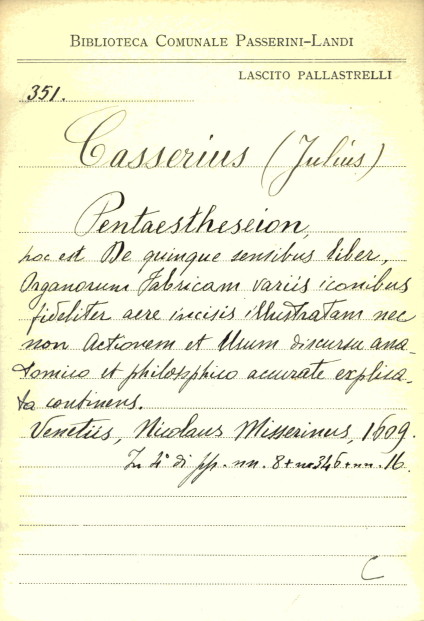 BIBLIOTECA COMUNALE PASSERINI-LANDI
LASCITO PALLASTRELLI
351.
Casserius (Julius)
Pentaestheseion,
hoc est De quinque sensibus liber,
Organorum Fabricam variis iconibus
fideliter aere incisis illustratam nec
non Actionem et Usum discursu ana-
tomico et philosophico accurate explica-
ta continens.
Venetiis, Nicolaus Misserinus, 1609.
In 4° di pp. nn. 8+ 346+nn. 16.
C